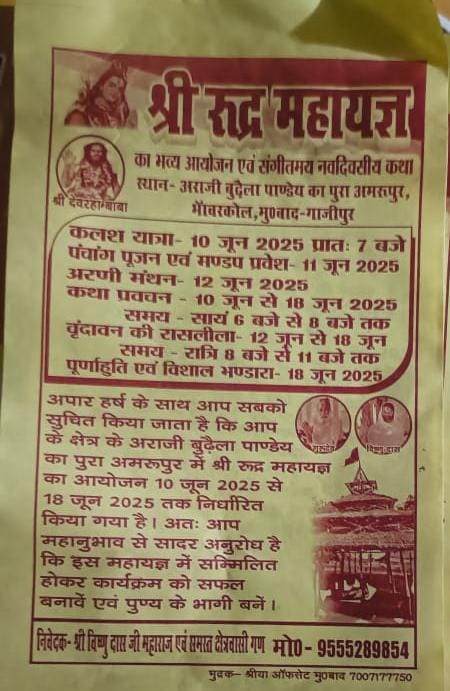 श्री रुद्र महायज्ञ
का भव्य आयोजन एवं संगीतमय नवदिवसीय कथा
स्थान- अराजी बुढ़ैला पाण्डेय का पुरा अमरूपुर,
भॉवरकोल,मु0बाद-गाजीपुर
श्री देवरहा बाबा
कलश यात्रा- 10 जून 2025 प्रातः 7 बजे
पंचांग पूजन एवं मण्डप प्रवेश- 11 जून 2025
अरणी मंथन- 12 जून 2025
कथा प्रवचन - 10 जून से 18 जून 2025
समय - सायं 6 बजे से 8 बजे तक
वृंदावन की रासलीला- 12 जून से 18 जून
समय - रात्रि 8 बजे से 11 बजे तक
पूर्णाहुति एवं विशाल भण्डारा- 18 जून 2025
अपार हर्ष के साथ आप सबको
सुचित किया जाता है कि आप
के क्षेत्र के अराजी बुढ़ैला पाण्डेय
का पुरा अमरूपुर में श्री रूद्र महायज्ञ
का आयोजन 10 जून 2025 से
18 जून 2025 तक निर्धारित
किया गया है। अतः आप
महानुभाव से सादर अनुरोध है
कि इस महायज्ञ में सम्मिलित
होकर कार्यक्रम को सफल
बनावें एवं पुण्य के भागी बनें।
विष्णु दास
निवेदक- श्री विष्णु दास जी महाराज एवं समस्त क्षेत्रवासी गण मो0- 9555289854
मुद्रक- श्रीया ऑफसेट मु0बाद 7007177750